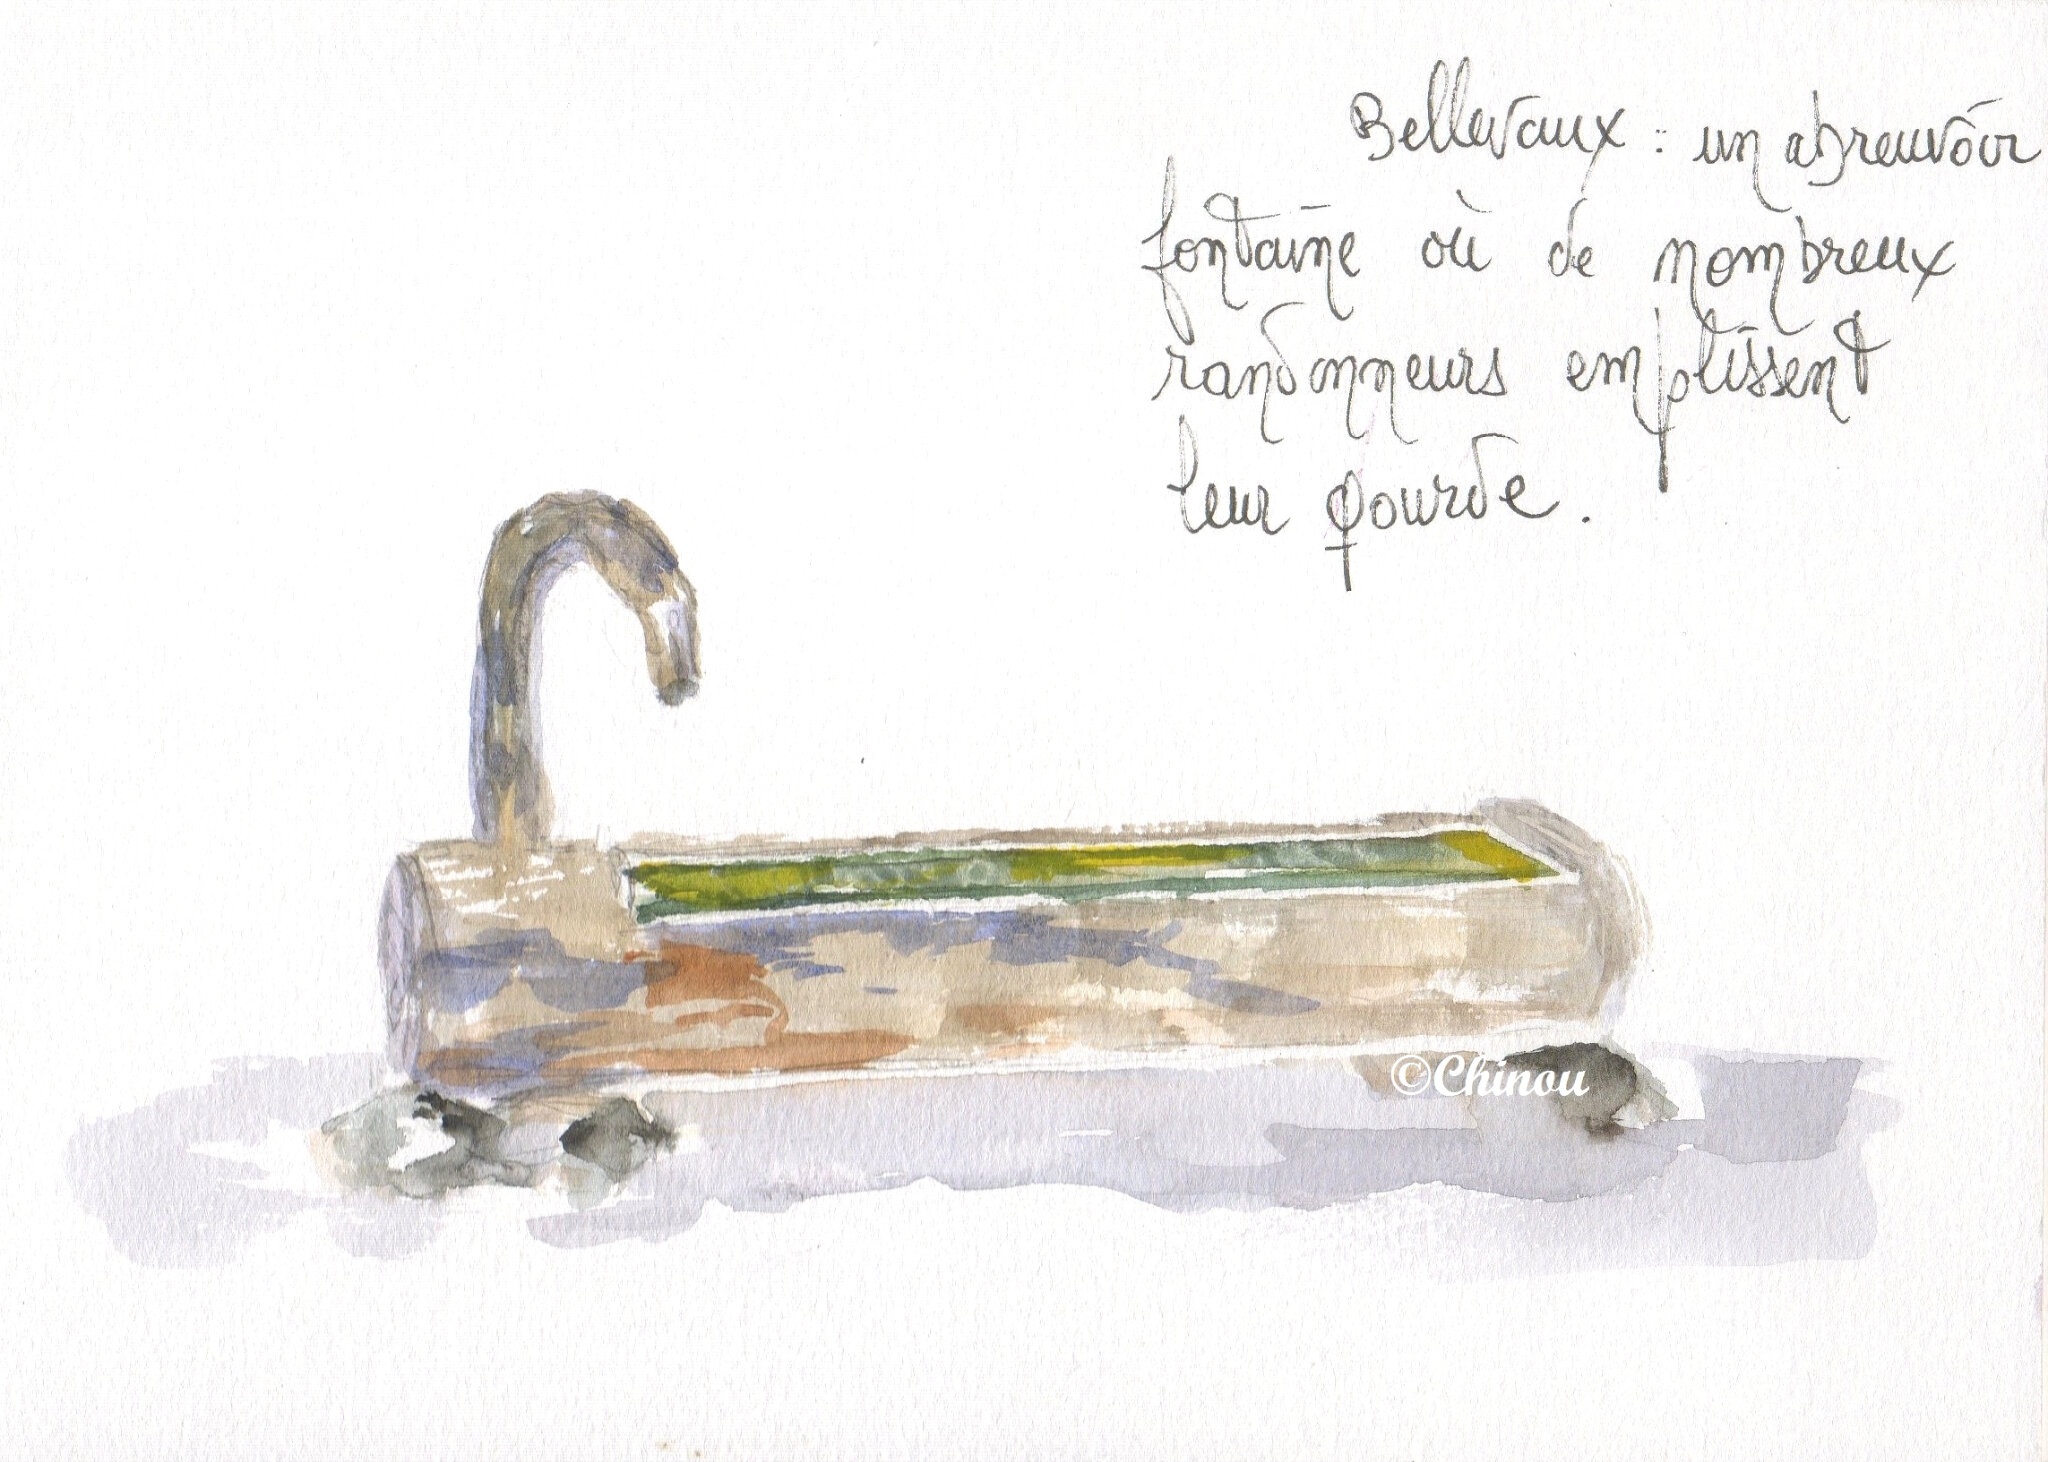 Bellevaux : un abreuvoir
fontaine où de nombreux
randonneurs emplissent
leur gourde.
©Chinou